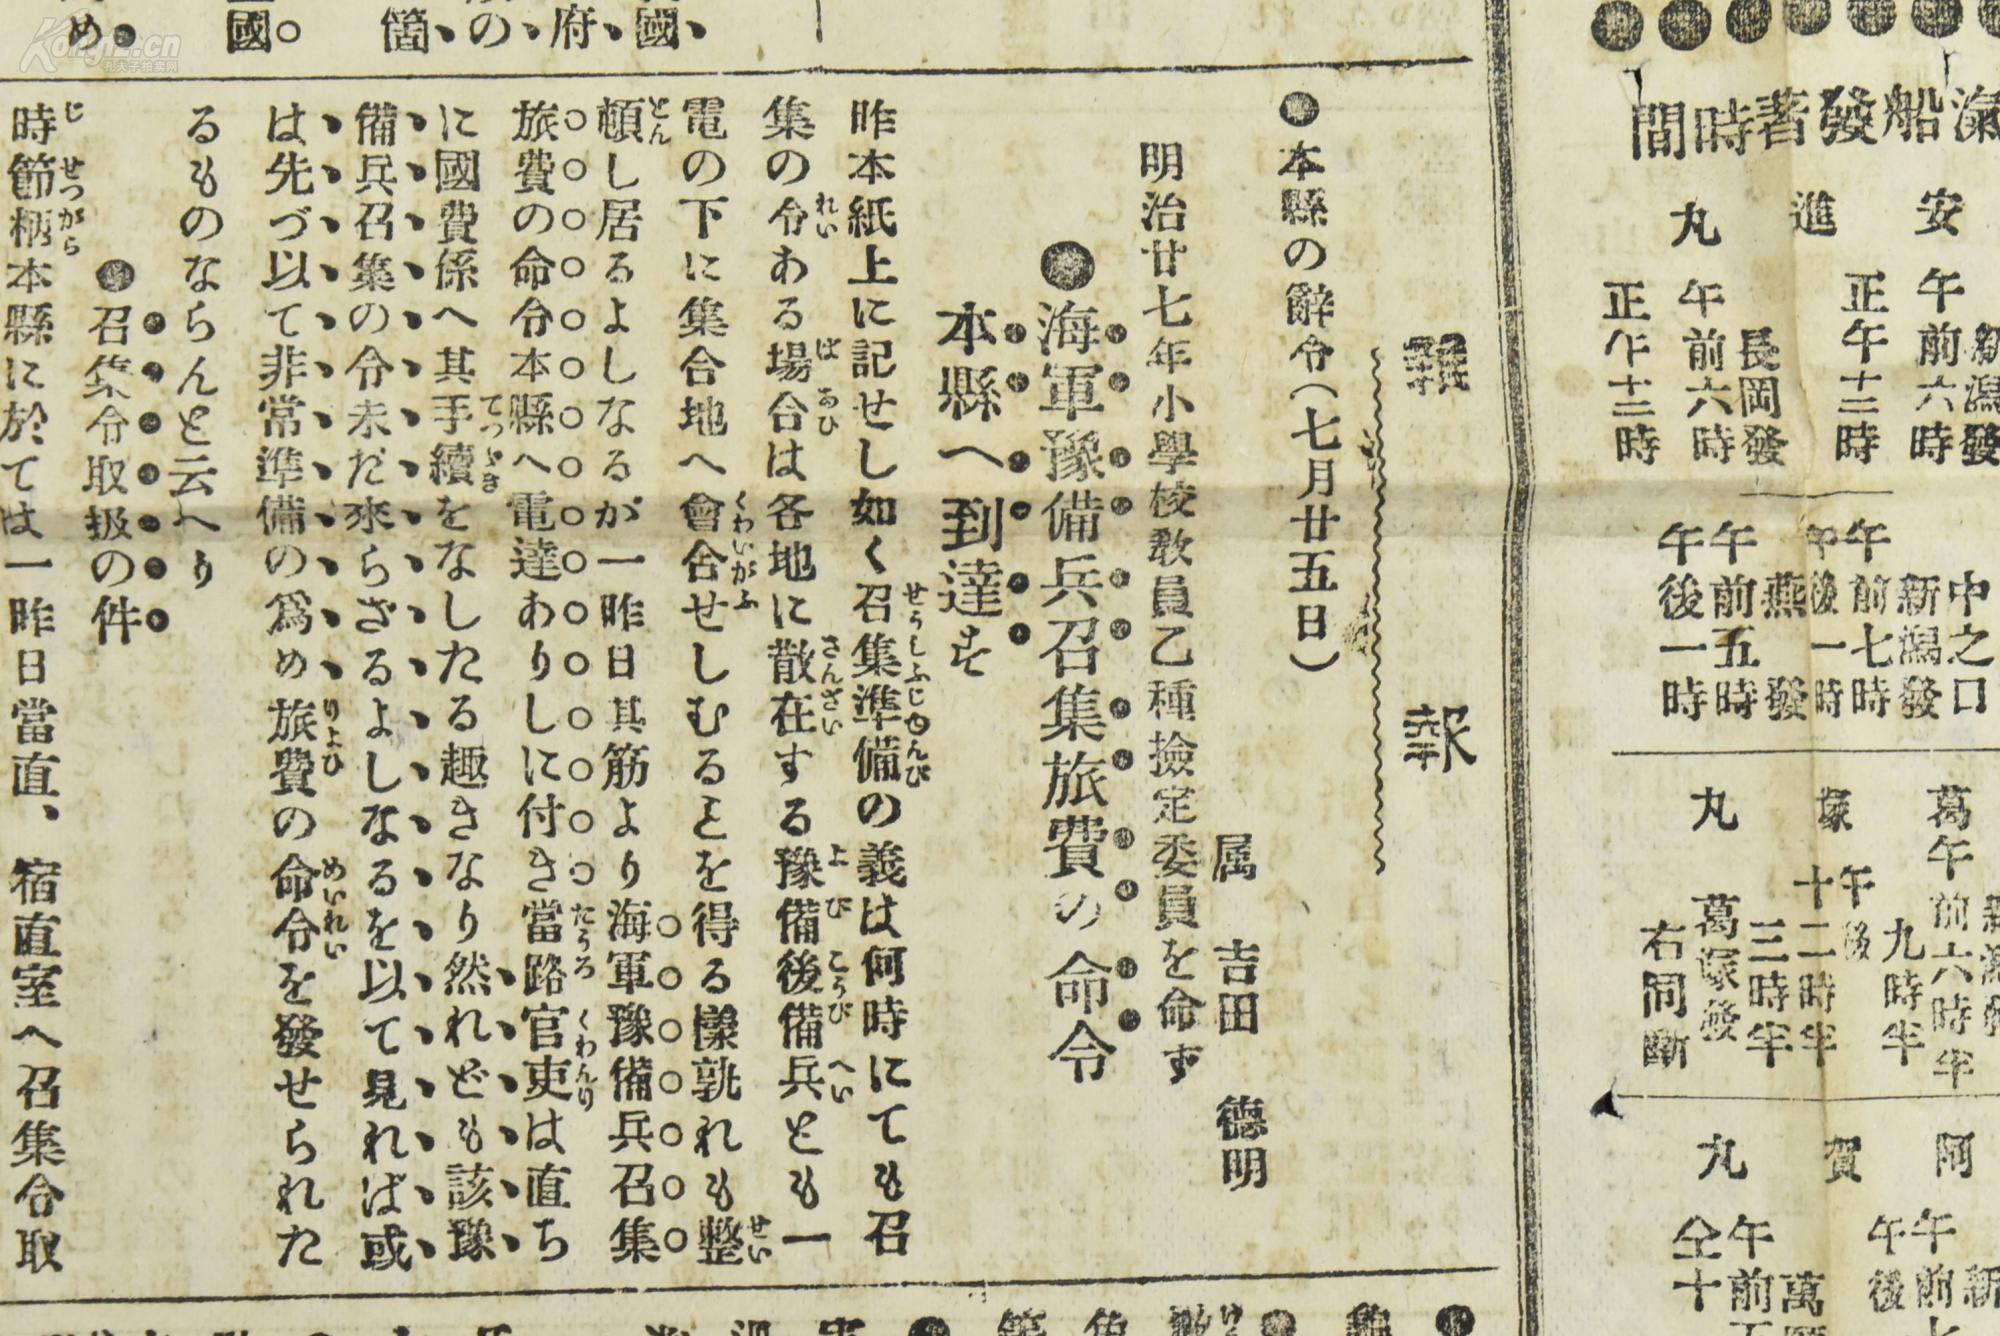 滊船發著時間
安進丸
新潟發
午前六時
正午十二時
長岡發
午前六時
正午十二時
中之口
新潟發
午前七時
午後一時
燕發
午前五時
午後一時
葛塚丸
午前六時半
九時半
午後
十二時半
三時半
葛塚發
右同斷
阿賀丸
午前
午後
午前
仝十
雜報
●本縣の辭令(七月廿五日)
属 吉田德明
明治廿七年小學校敎員乙種撿定委員を命ず
●海軍豫備兵召集旅費の命令
本縣へ到達す
昨本紙上に記せし如く召集準備の義は何時にても召
集の令ある場合は各地に散在する豫備後備兵とも一
電の下に集合地へ會合せしむるとを得る樣孰れも整
頓し居るよしなるが一昨日其筋より海軍豫備兵召集
旅費の命令本縣へ電達ありしに付き當路官吏は直ち
に國費係へ其手續をなしたる趣きなり然れども該豫
備兵召集の令未だ來らざるよしなるを以て見れば或
は先づ以て非常準備の爲め旅費の命令を發せられた
るものならんと云へり
●召集令取扱の件
時節柄本縣に於ては一昨日當直、宿直室へ召集令取